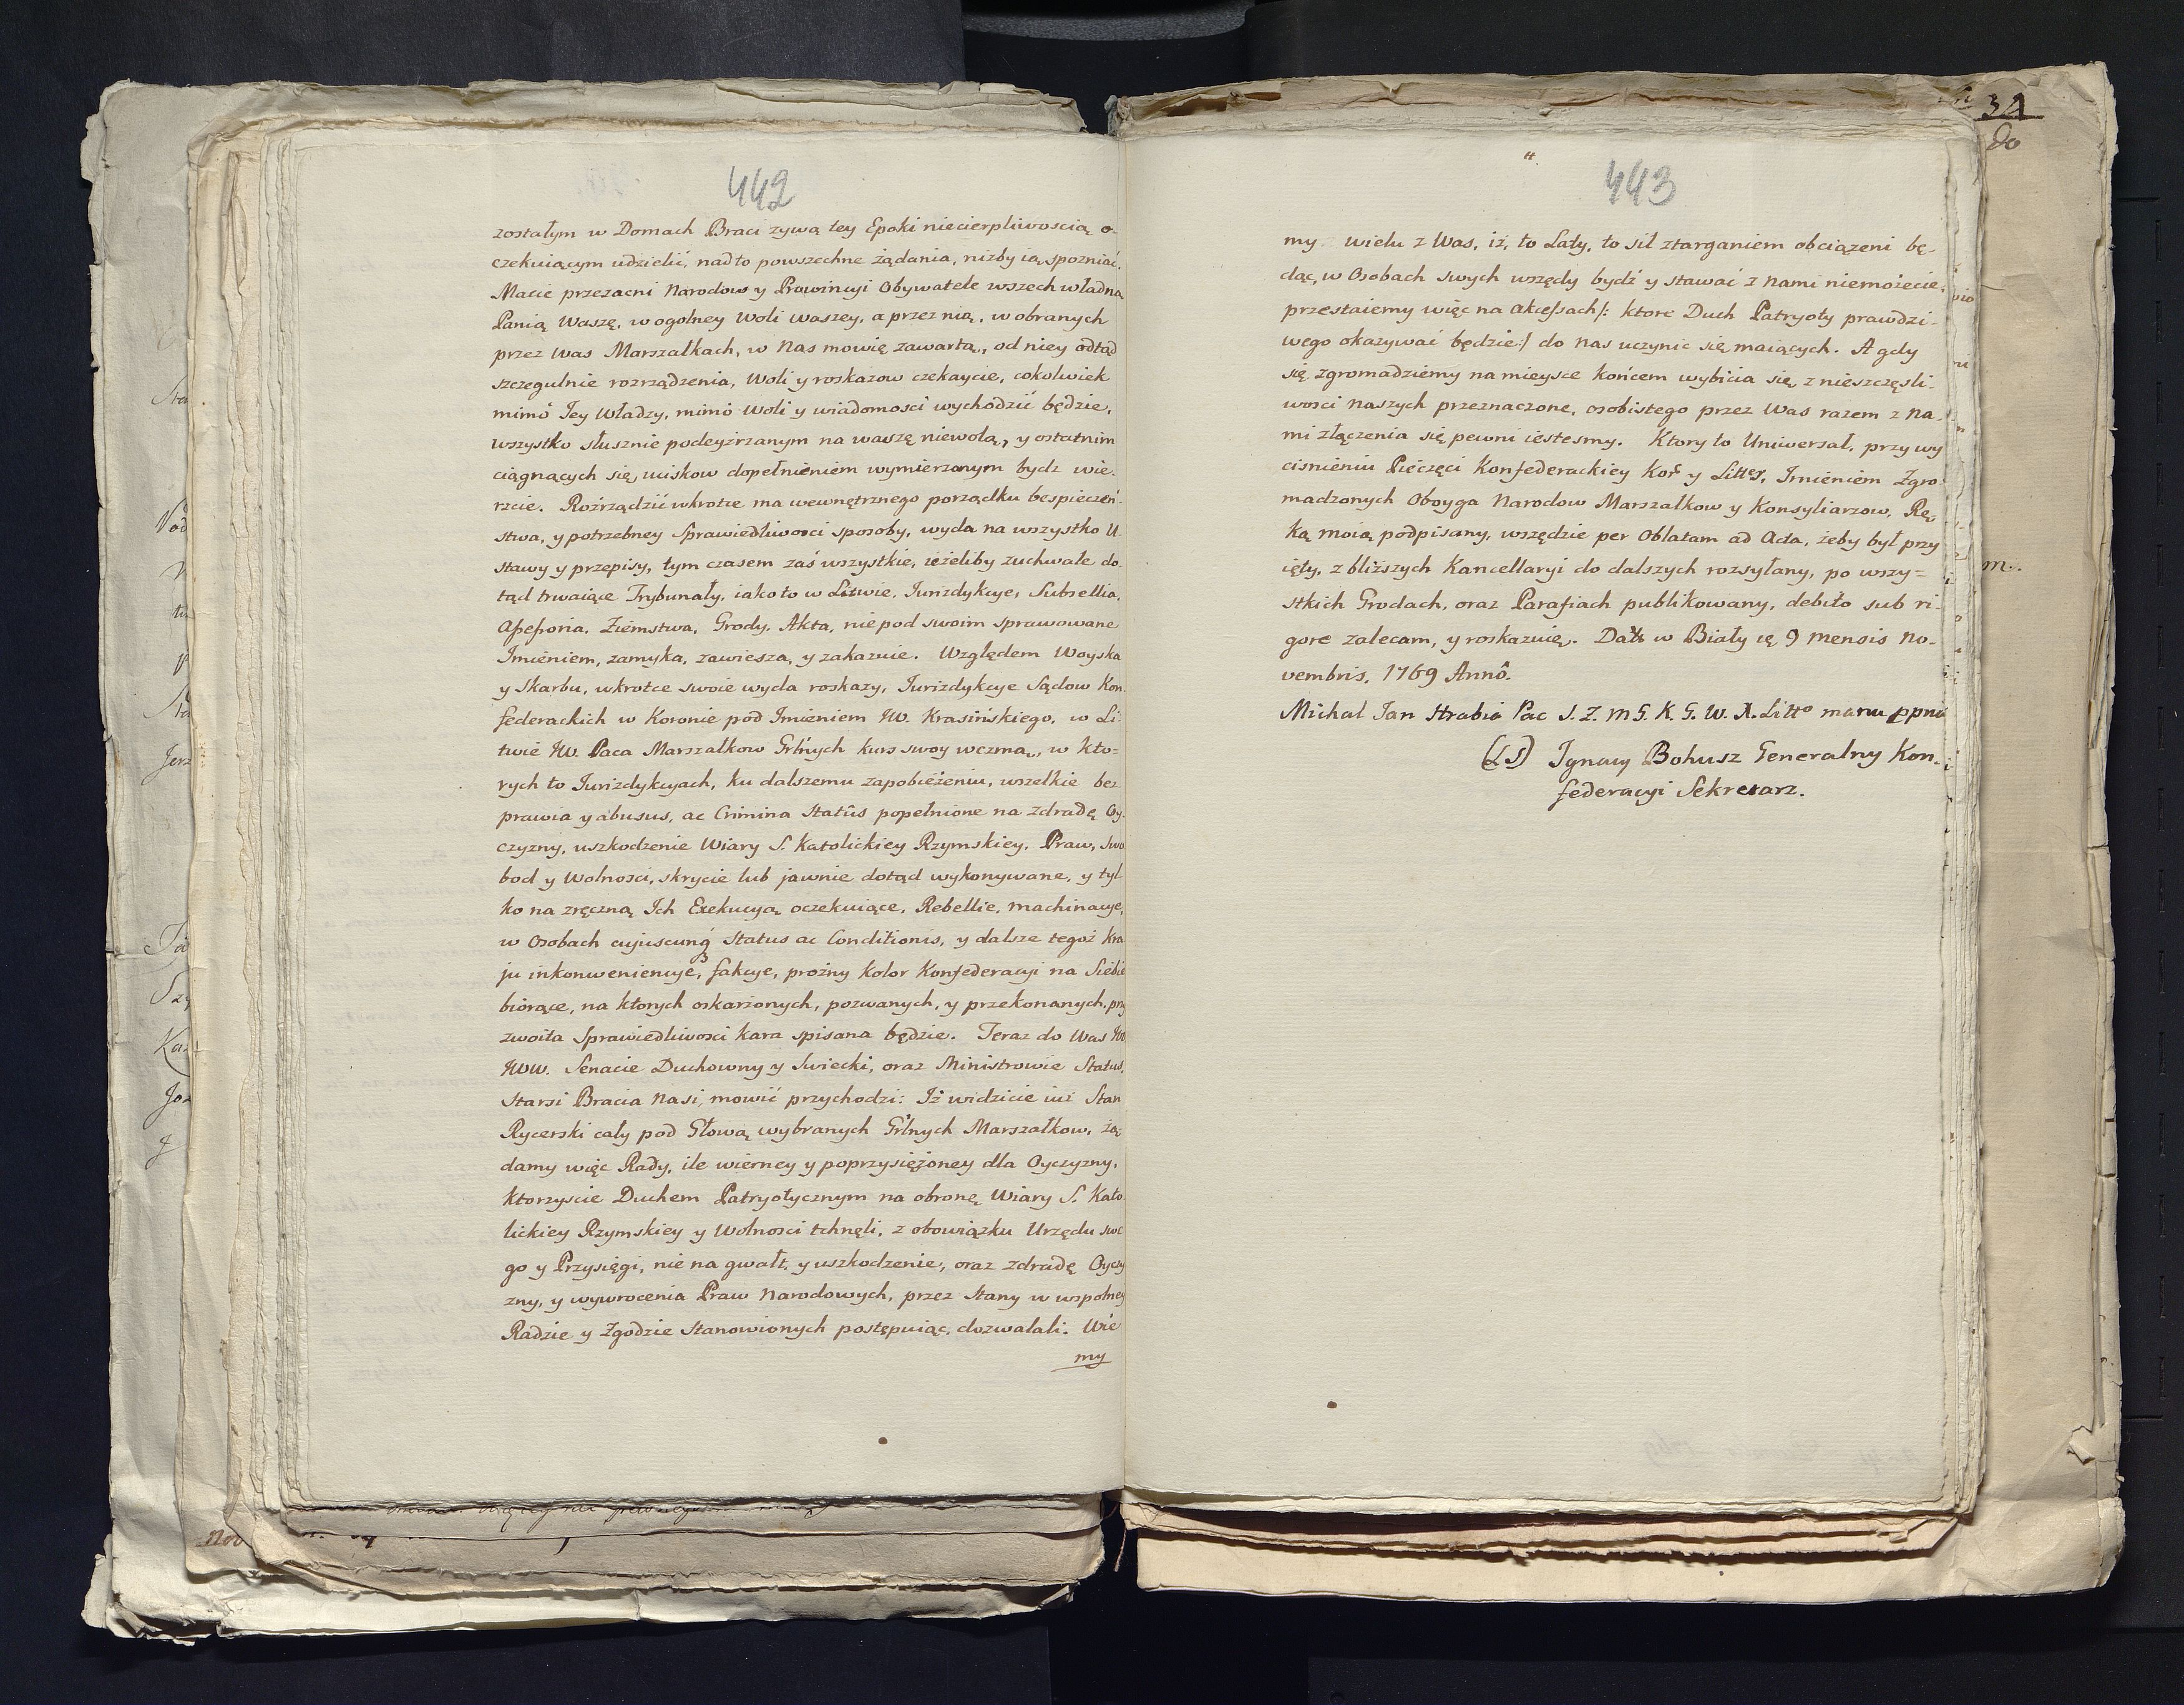 442
zostałym w Domach Braci zywą tey Epoki niecierpliwoscią o-
czekuiącym udzielić, nad to powszechne żądania, niżby ią spozniać.
Macie przezacni Narodow y Prowincyi Obywatele wszechwładną
Panią Waszę, w ogolney Woli waszey, a przez nią, w obranych
przez Was Marszałkach, w Nas mowię zawartą, od niey odtąd
szczegulnie rozrządzenia, Woli y roskazow czekaycie, cokolwiek
mimô Jey Władzy, mimô Woli y wiadomosci wychodzić będzie,
wszystko słusznie podeyźrzanym na waszę niewolą, y ostatnim
ciągnących się uciskow dopełnieniem wymierzonym bydz wie-
rzcie. Rozrządzić wkrotce ma wewnętrznego porządku bespieczeń-
stwa, y potrzebney Sprawiedliwosci sposoby, wyda na wszystko U-
stawy y przepisy, tym czasem zaś wszystkie, ieżeliby zuchwałe do-
tąd trwaiące Trybunały, iako to w Litwie, Jurizdykcye, Subsellia,
Assessoria, Ziemstwa, Grody, Akta, nie pod swoim sprawowane
Imieniem, zamyka, zawiesza, y zakazuie. Względem Woyska
y Skarbu, wkrotce swoie wyda roskazy, Jurizdykcye Sądow Kon-
federackich w Koronie pod Imieniem JW. Krasińskiego, w Li-
twie JW. Paca Marszałkow Grlnych kurs swoy wezmą, w kto=
rych to Jurizdykcyach, ku dalszemu zapobieżeniu, wszelkie bez-
prawia y abusus, ac Crimina Statûs popełnione na zdradę Oy-
czyzny, uszkodzenie Wiary S. Katolickiey Rzymskiey, Praw, Swo
bod y Wolnosci, skrycie lub jawnie dotąd wykonywane, y tyl-
ko na zręczną Ich Exekucyą oczekuiące, Rebellie, machinacye,
w Osobach cujuscunq Status ac Conditionis, y dalsze tegoż Kra
ju inkonweniencye, fakcye, prożny kolor Konfederacyi na Siebie
biorące, na ktorych oskarżonych, pozwanych, y przekonanych, przy
zwoita Sprawiedliwosci kara spisana będzie. Teraz do Was JW
JWW. Senacie Duchowny y Swiecki, oraz Ministrowie Status,
Starsi Bracia Nasi, mowić przychodzi: Iż widzicie iuż Stan
Rycerski cały pod Głową wybranych Grlnych Marszałkow, żą
damy więc Rady, ile wierney y poprzysiężoney dla Oyczyzny,
ktorzyscie Duchem Patryotycznym na obronę Wiary S. Kato
lickiey Rzymskiey y Wolnosci tchnęli, z obowiązku Urzędu swe
go y Przysięgi, nie na gwałt, y uszkodzenie, oraz zdradę Oyczy
zny, y wywrocenia Praw Narodowych, przez Stany w wspolney
Radzie y Zgodzie Stanowionych postępuiąc, dozwalali. Wie
my
443
my wielu z Was, iż, to Laty, to sił ztarganiem obciązeni bę-
dąc, w Osobach swych wszędy bydź y stawać z Nami niemożecie,
przestaiemy więc na Akcessach /: ktore Duch Patryoty prawdzi-
wego okazywać będzie :/ do Nas uczynic się maiących. A gdy
się zgromadziemy na mieysce końcem wybicia się z nieszczęsli-
wosci Naszych przeznaczone, osobistego przez Was razem z Na-
mi złączenia się pewni iestesmy. Ktory to Uniwersał, przy wy
cisnieniu Pieczęci Konfederackiey Kor y Litter, Imieniem Zgro-
madzonych Oboyga Narodow Marszałkow y Konsyliarzow, Rę-
ką moią podpisany, wszędzie per Oblatam ad Acta, żeby był przy
ięty, z bliższych Kancellaryi do dalszych rozsyłany, po wszy=
stkich Grodach, oraz Parafiach publikowany, debito sub ri-
gore zalecam, y roskazuię. Datt w Biały ię 9 Mensis No-
vembris, 1769 Annô.
Michał Jan Hrabia Pac S. Z. M G. K. G. W. X. Litto manu ppria
(LS) Ignacy Bohusz Generalny Kon-
federacyi Sekretarz.